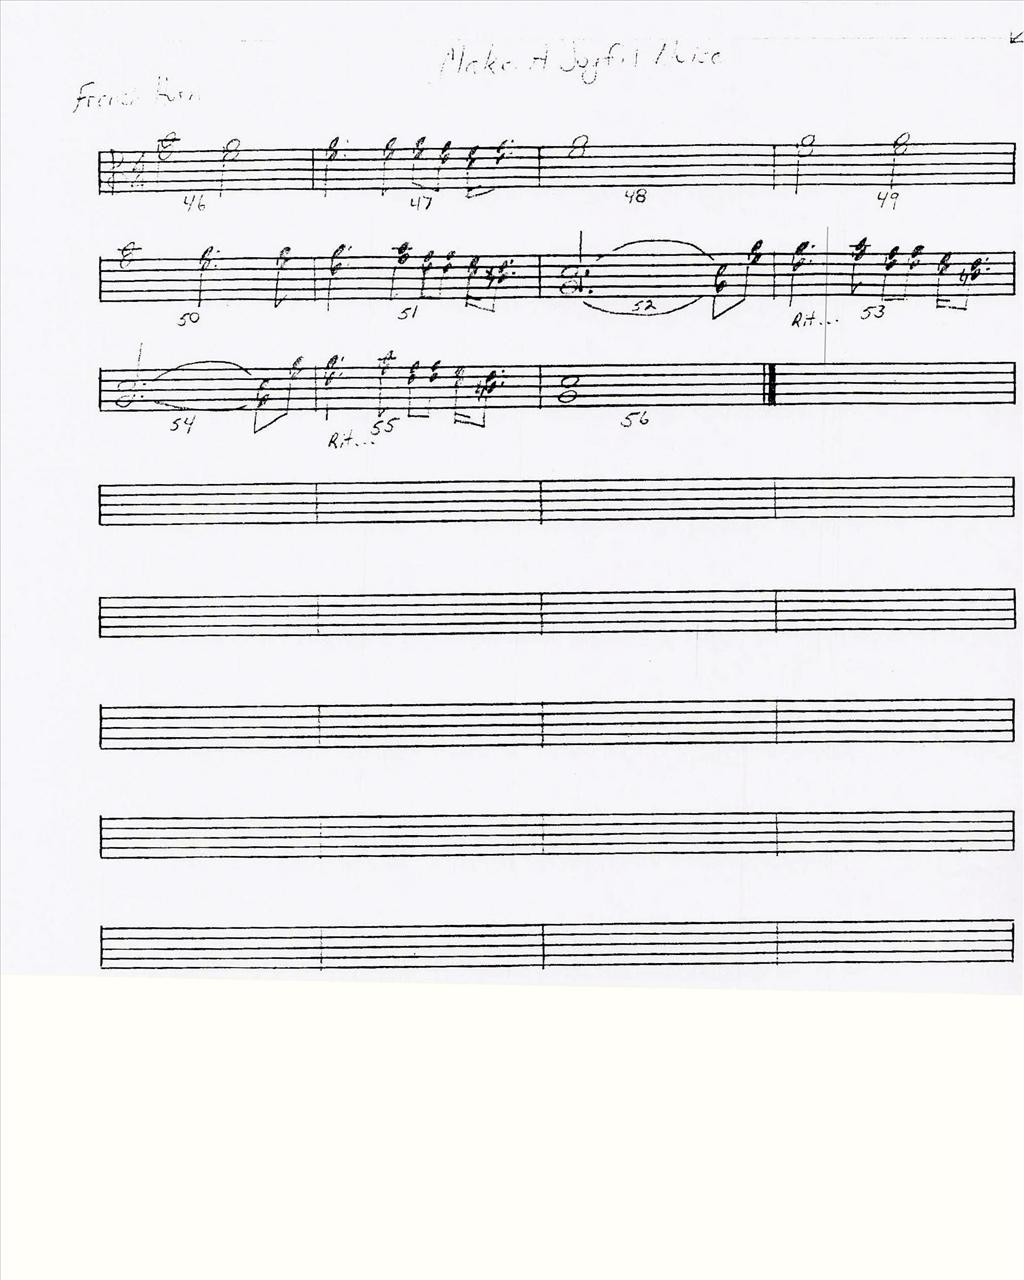 Make A Joyful Noise
French Horn
46 47 48 49
50 51 52 Rit... 53
54 Rit... 55 56